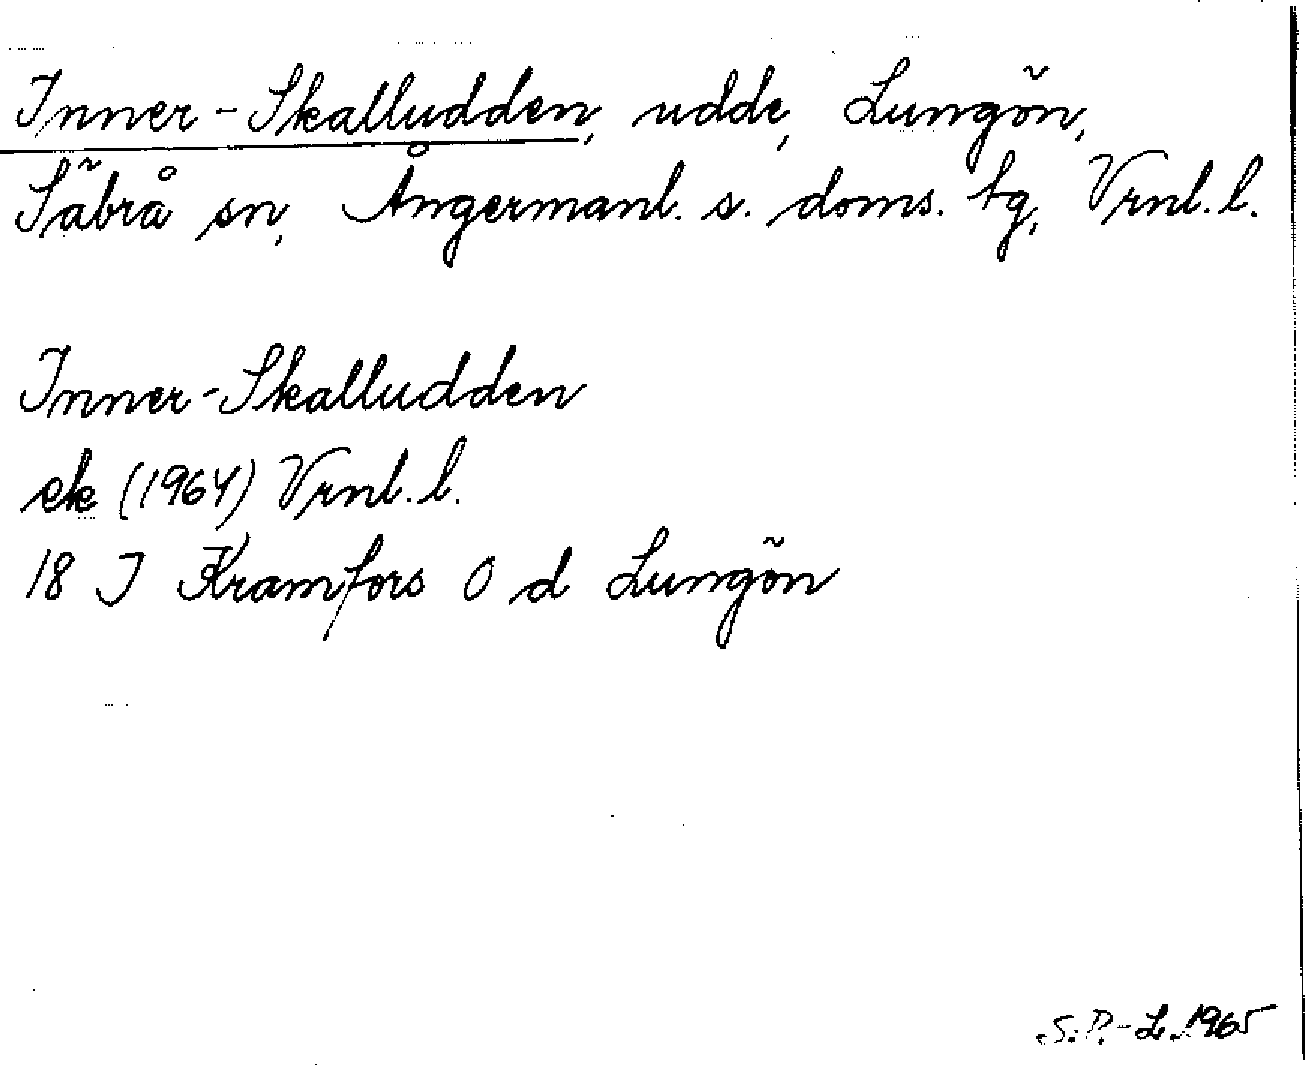 Inner-Skalludden, udde, Lungön,
Säbrå sn, Ångermanl. s. doms. tg, Vrnl. l.
Inner-Skalludden
ek (1964) Vrnl. l.
18 I Kramfors O d Lungön
S.P.-L. 1965